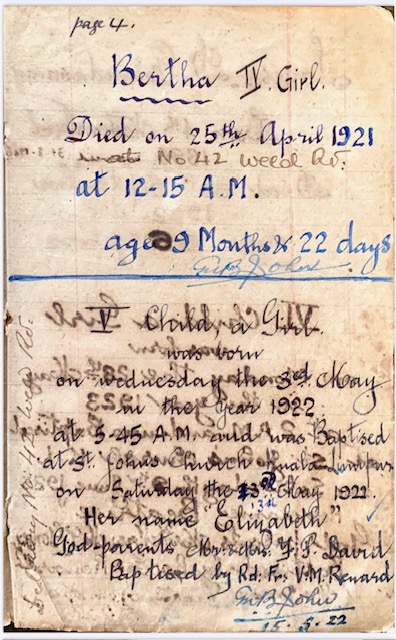 page 4.
Bertha IV. Girl.
Died on 25th April 1921
No 42 Weld Rd.
at 12-15 A.M.
age 9 Months & 22 days
V Child, a Girl.
was born
on wednesday the 3rd May
in the year 1922.
at 5-45 A.M. and was Baptised
at St. Johns Church Kuala Lumpur
on Saturday the 13th May 1922.
13th
Her name "Elizabeth"
God-parents Mr. & Mrs. Y. P. David
Baptised by Rd. Fr. V. M. Renard
15. 5. 22
No. 42 Weld Rd.